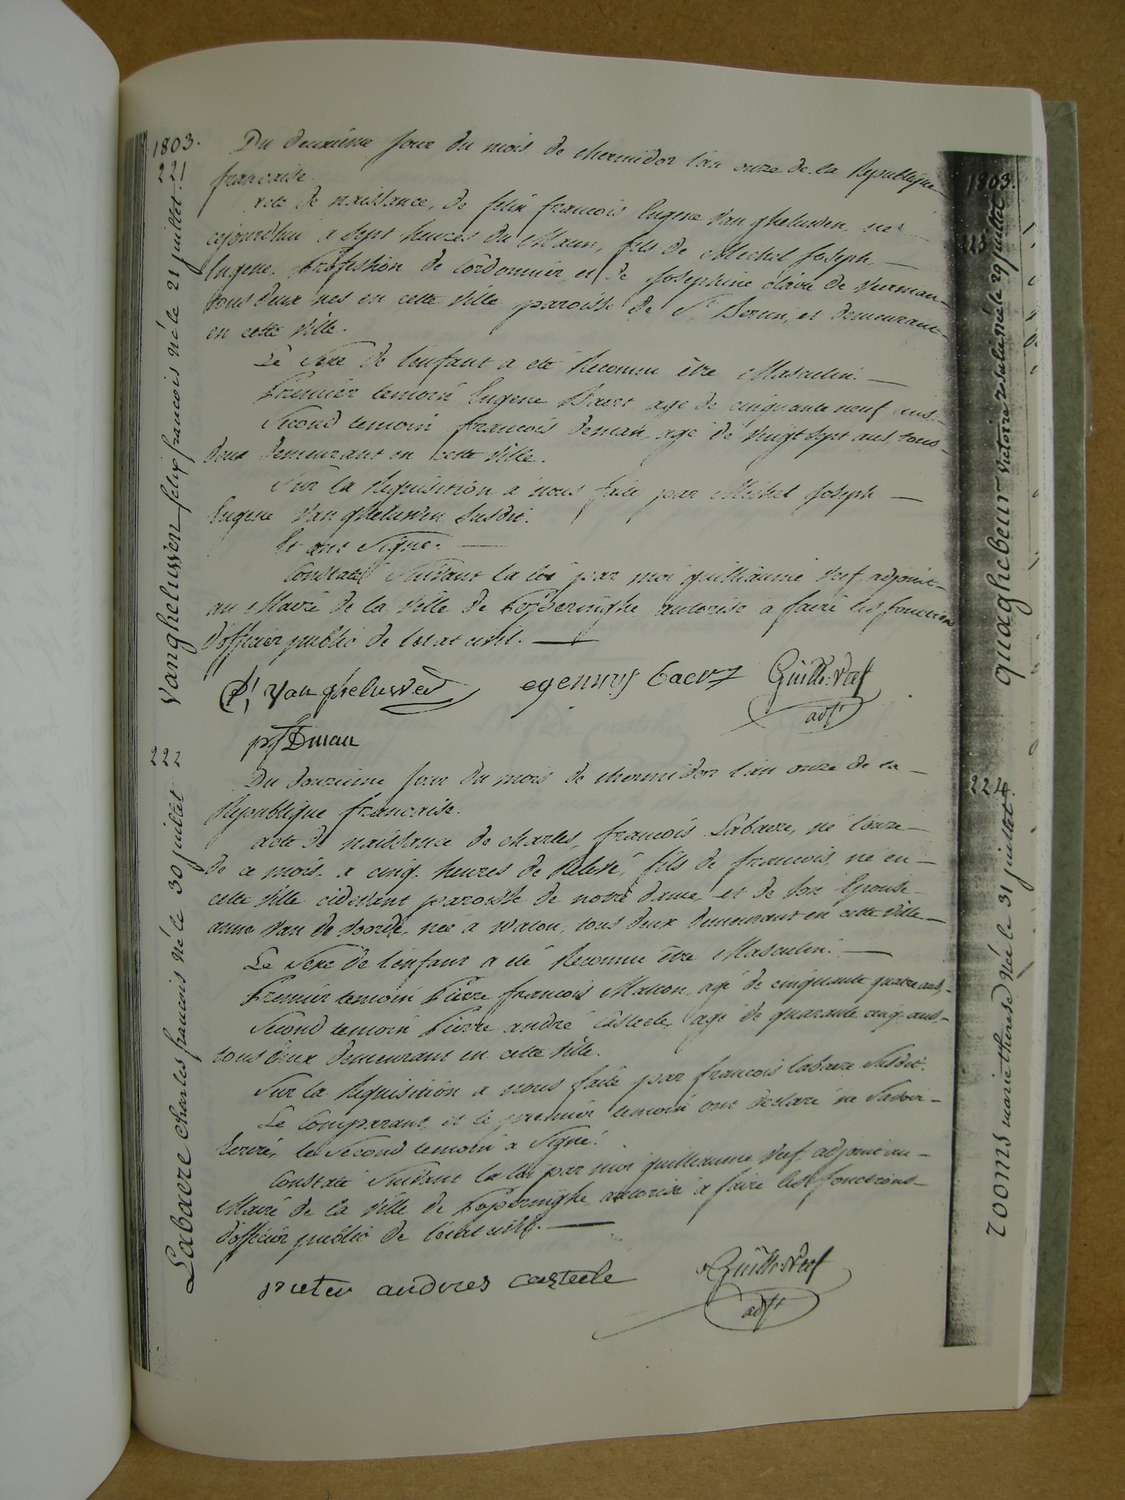 1803.
221
Vanghelüsen felix francois né le 21 juillet
Du deuxième jour du mois de thermidor l'an onze de la République
française.
acte de naissance, de félix françois Eugene Van ghelusen, né
aujourdhui a sept heures du Matin, fils de Michel Joseph
Eugene, Profession de Cordonnier, et de Josephine Claire de
tous deux nés en cette ville paroisse de St Bertin, et demeurant
en cette ville.
Le Sexe de l'enfant a été Reconnu être Masculin.
Premier temoin Eugene Baert agé de cinquante neuf ans
Second temoin francois deman agé de vingt sept ans tous
deux demeurant en cette ville.
Sur la Requisition a nous faite par Michel Joseph
Eugene Van ghelusen Susdit.
Et ont Signé.
Constaté Suivant la loi par moi guilliaume Verf adjoint
au Maire de la ville de Poperinghe autorisé a faire les fonctions
d'officier public de l'etat civil.
Van ghelussen
egennus baert
Guill. Verf
adjt
222
Labaere charles francois né le 30 juillet
Du douzième jour du mois de thermidor l'an onze de la
République française.
acte de naissance de charles, françois Labaere, né l'onze
de ce mois a cinq heures de Relevé, fils de francois, né en
cette ville cidevant paroisse de notre dame et de son Epouse
anne Van de née a tous deux demeurant en cette ville
Le Sexe de l'enfant a été Reconnu être Masculin.
Premier temoin Pierre francois agé de cinquante quatre ans,
Second temoin Pierre andré Casteele, agé de quarante cinq ans
tous deux demeurant en cette ville.
Sur la Requisition a nous faite par francois labaere Susdit.
Le Comparant et le premier temoin ont declaré ne Savoir
Ecrire, le Second temoin a Signé.
Constaté Suivant la loi par moi guilliaume Verf adjoint au
Maire de la ville de Poperinghe autorisé a faire les fonctions
d'officier public de l'etat civil.
pieter andries casteele
Guill. Verf
adjt
1803.
223
quaghebeur victoire rosalia née le 29 juillet
224
Tooms marie therese née le 31 juillet